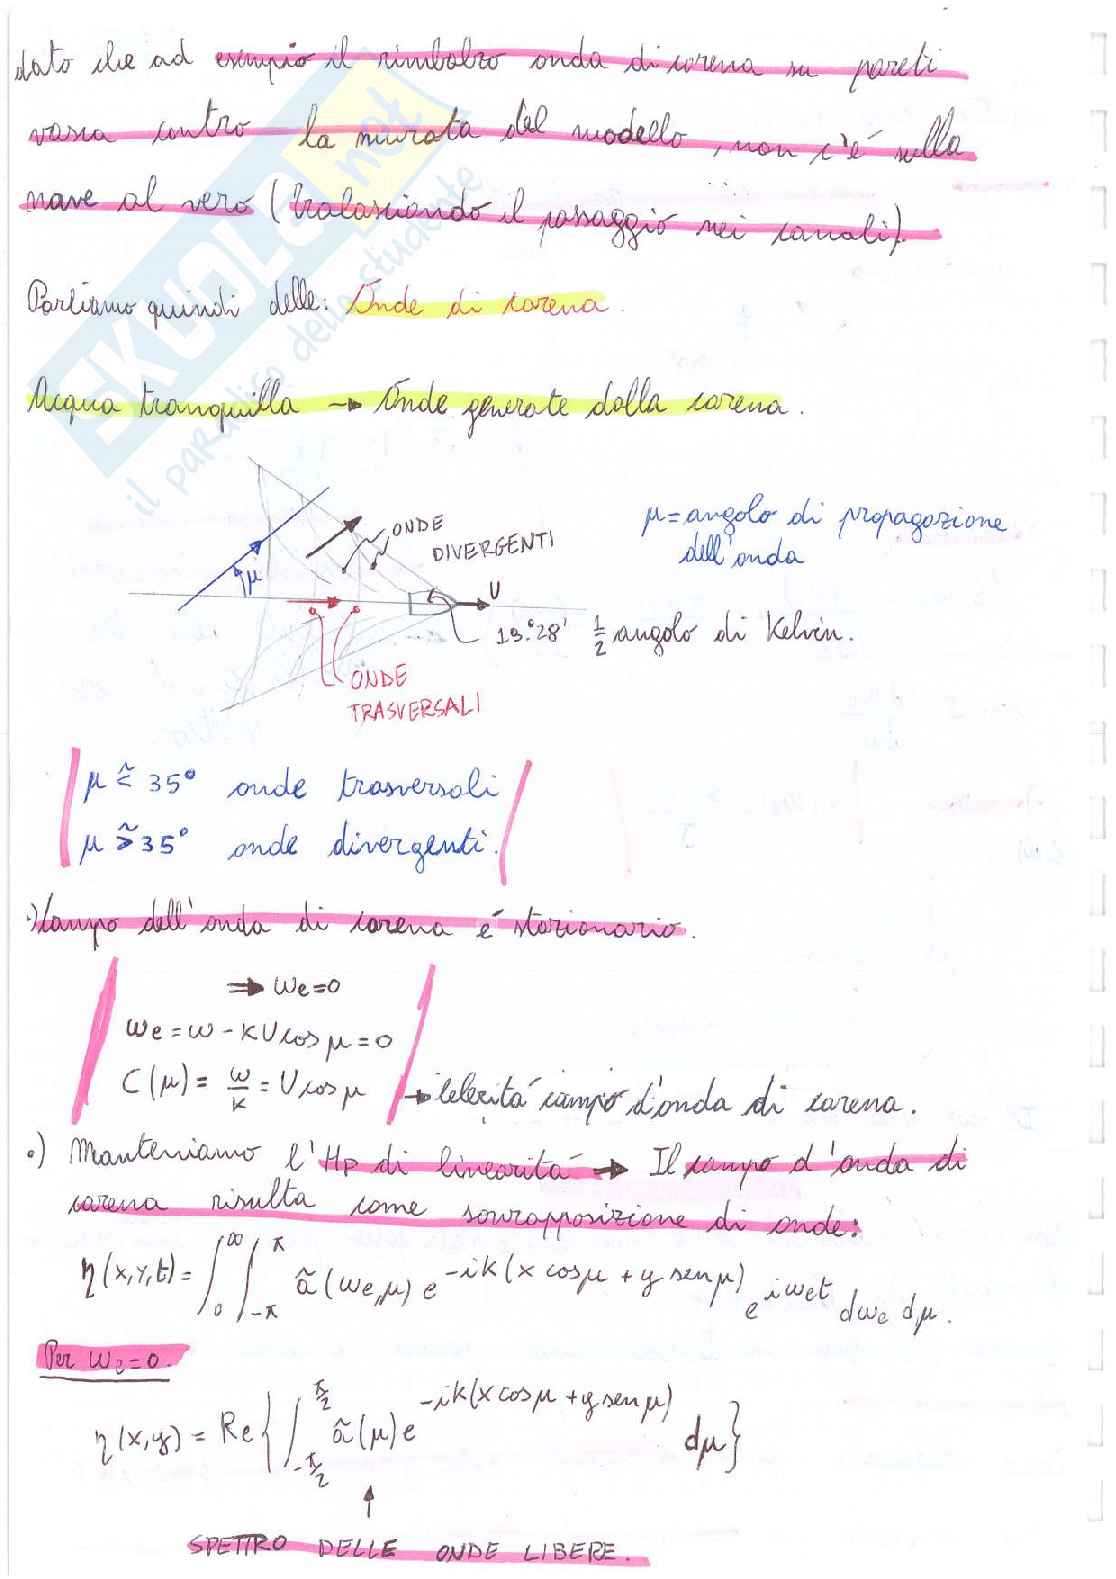 dato che ad esempio il rimbalzo onda di carena su pareti
vasca contro la murata del modello, non c'é sulla
nave al vero (tralasciando il passaggio nei canali).
Parliamo quindi delle: Onde di carena.
Acqua tranquilla → Onde generate dalla carena.
SKUOLA.net
il paradiso dello studente
μ = angolo di propagazione
dell'onda
ONDE
DIVERGENTI
μ
U
19°28' 1/2 angolo di Kelvin.
ONDE
TRASVERSALI
μ ≲ 35° onde trasversali
μ ≳ 35° onde divergenti.
·) Campo dell'onda di carena é stazionario.
⇒ ωe=0
ωe = ω - kU cos μ = 0
C(μ) = ω/k = U cos μ → Celeritá campo d'onda di carena.
·) Manteniamo l'Hp di linearitá → Il campo d'onda di
carena risulta come sovrapposizione di onde:
η(x,y,t) = ∫₀^∞ ∫_{-π}^{π} ã(ωe,μ) e^{-ik(x cosμ + y senμ)} e^{iωet} dωe dμ.
Per ωe=0.
η(x,y) = Re{∫_{-π/2}^{π/2} ã(μ) e^{-ik(x cosμ + y senμ)} dμ}
↑
SPETTRO DELLE ONDE LIBERE.